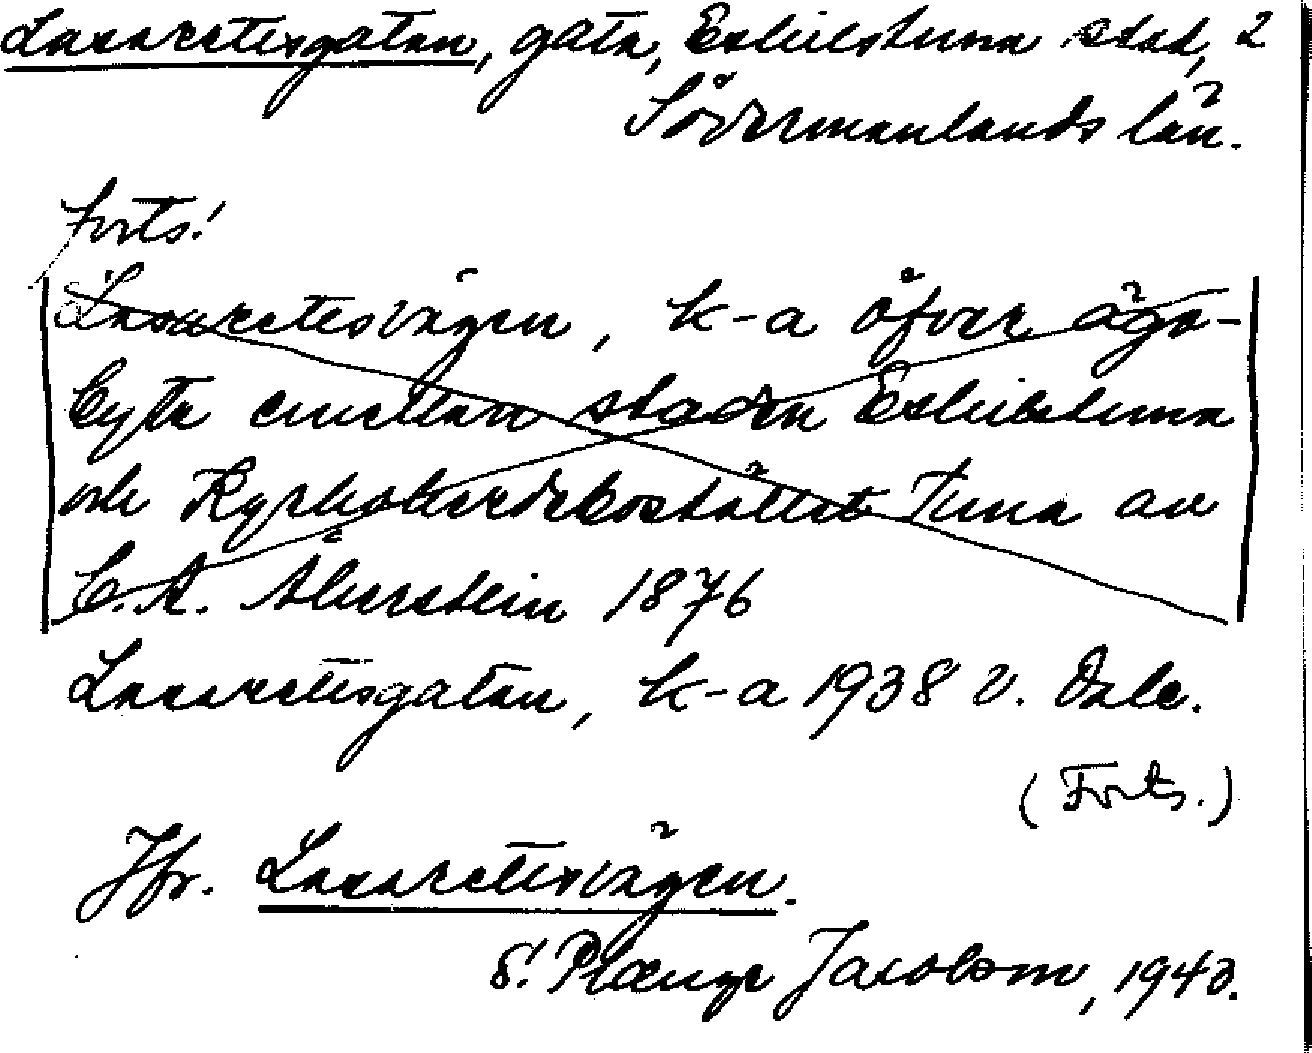 Lasarettsgatan, gata, Eskilstuna stad, 2
Södermanlands län.
Forts!
Lasarettsvägen, k-a öfver ägo-
byte emellan staden Eskilstuna
och Kyrkoherdebostället Tuna av
C.A. Åkerstein 1876
Lasarettsgatan, k-a 1938 v. Dale.
(Forts.)
Jfr. Lasarettsvägen.
S. Jacobson, 1940.